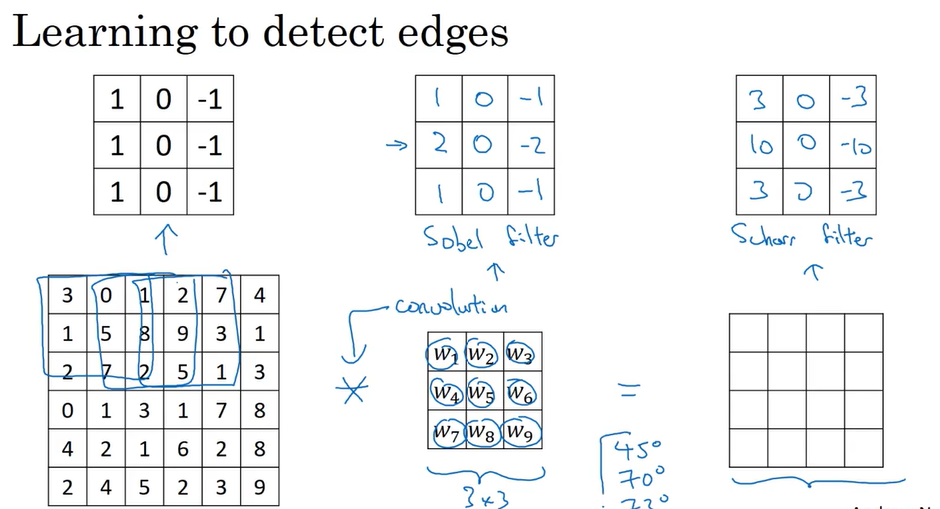 Learning to detect edges
1 0 -1
1 0 -1
1 0 -1
1 0 -1
2 0 -2
1 0 -1
Sobel filter
3 0 -3
10 0 -10
3 0 -3
Scharr filter
3 0 1 2 7 4
1 5 8 9 3 1
2 7 2 5 1 3
0 1 3 1 7 8
4 2 1 6 2 8
2 4 5 2 3 9
convolution
*
w1 w2 w3
w4 w5 w6
w7 w8 w9
3x3
=
45°
70°
73°